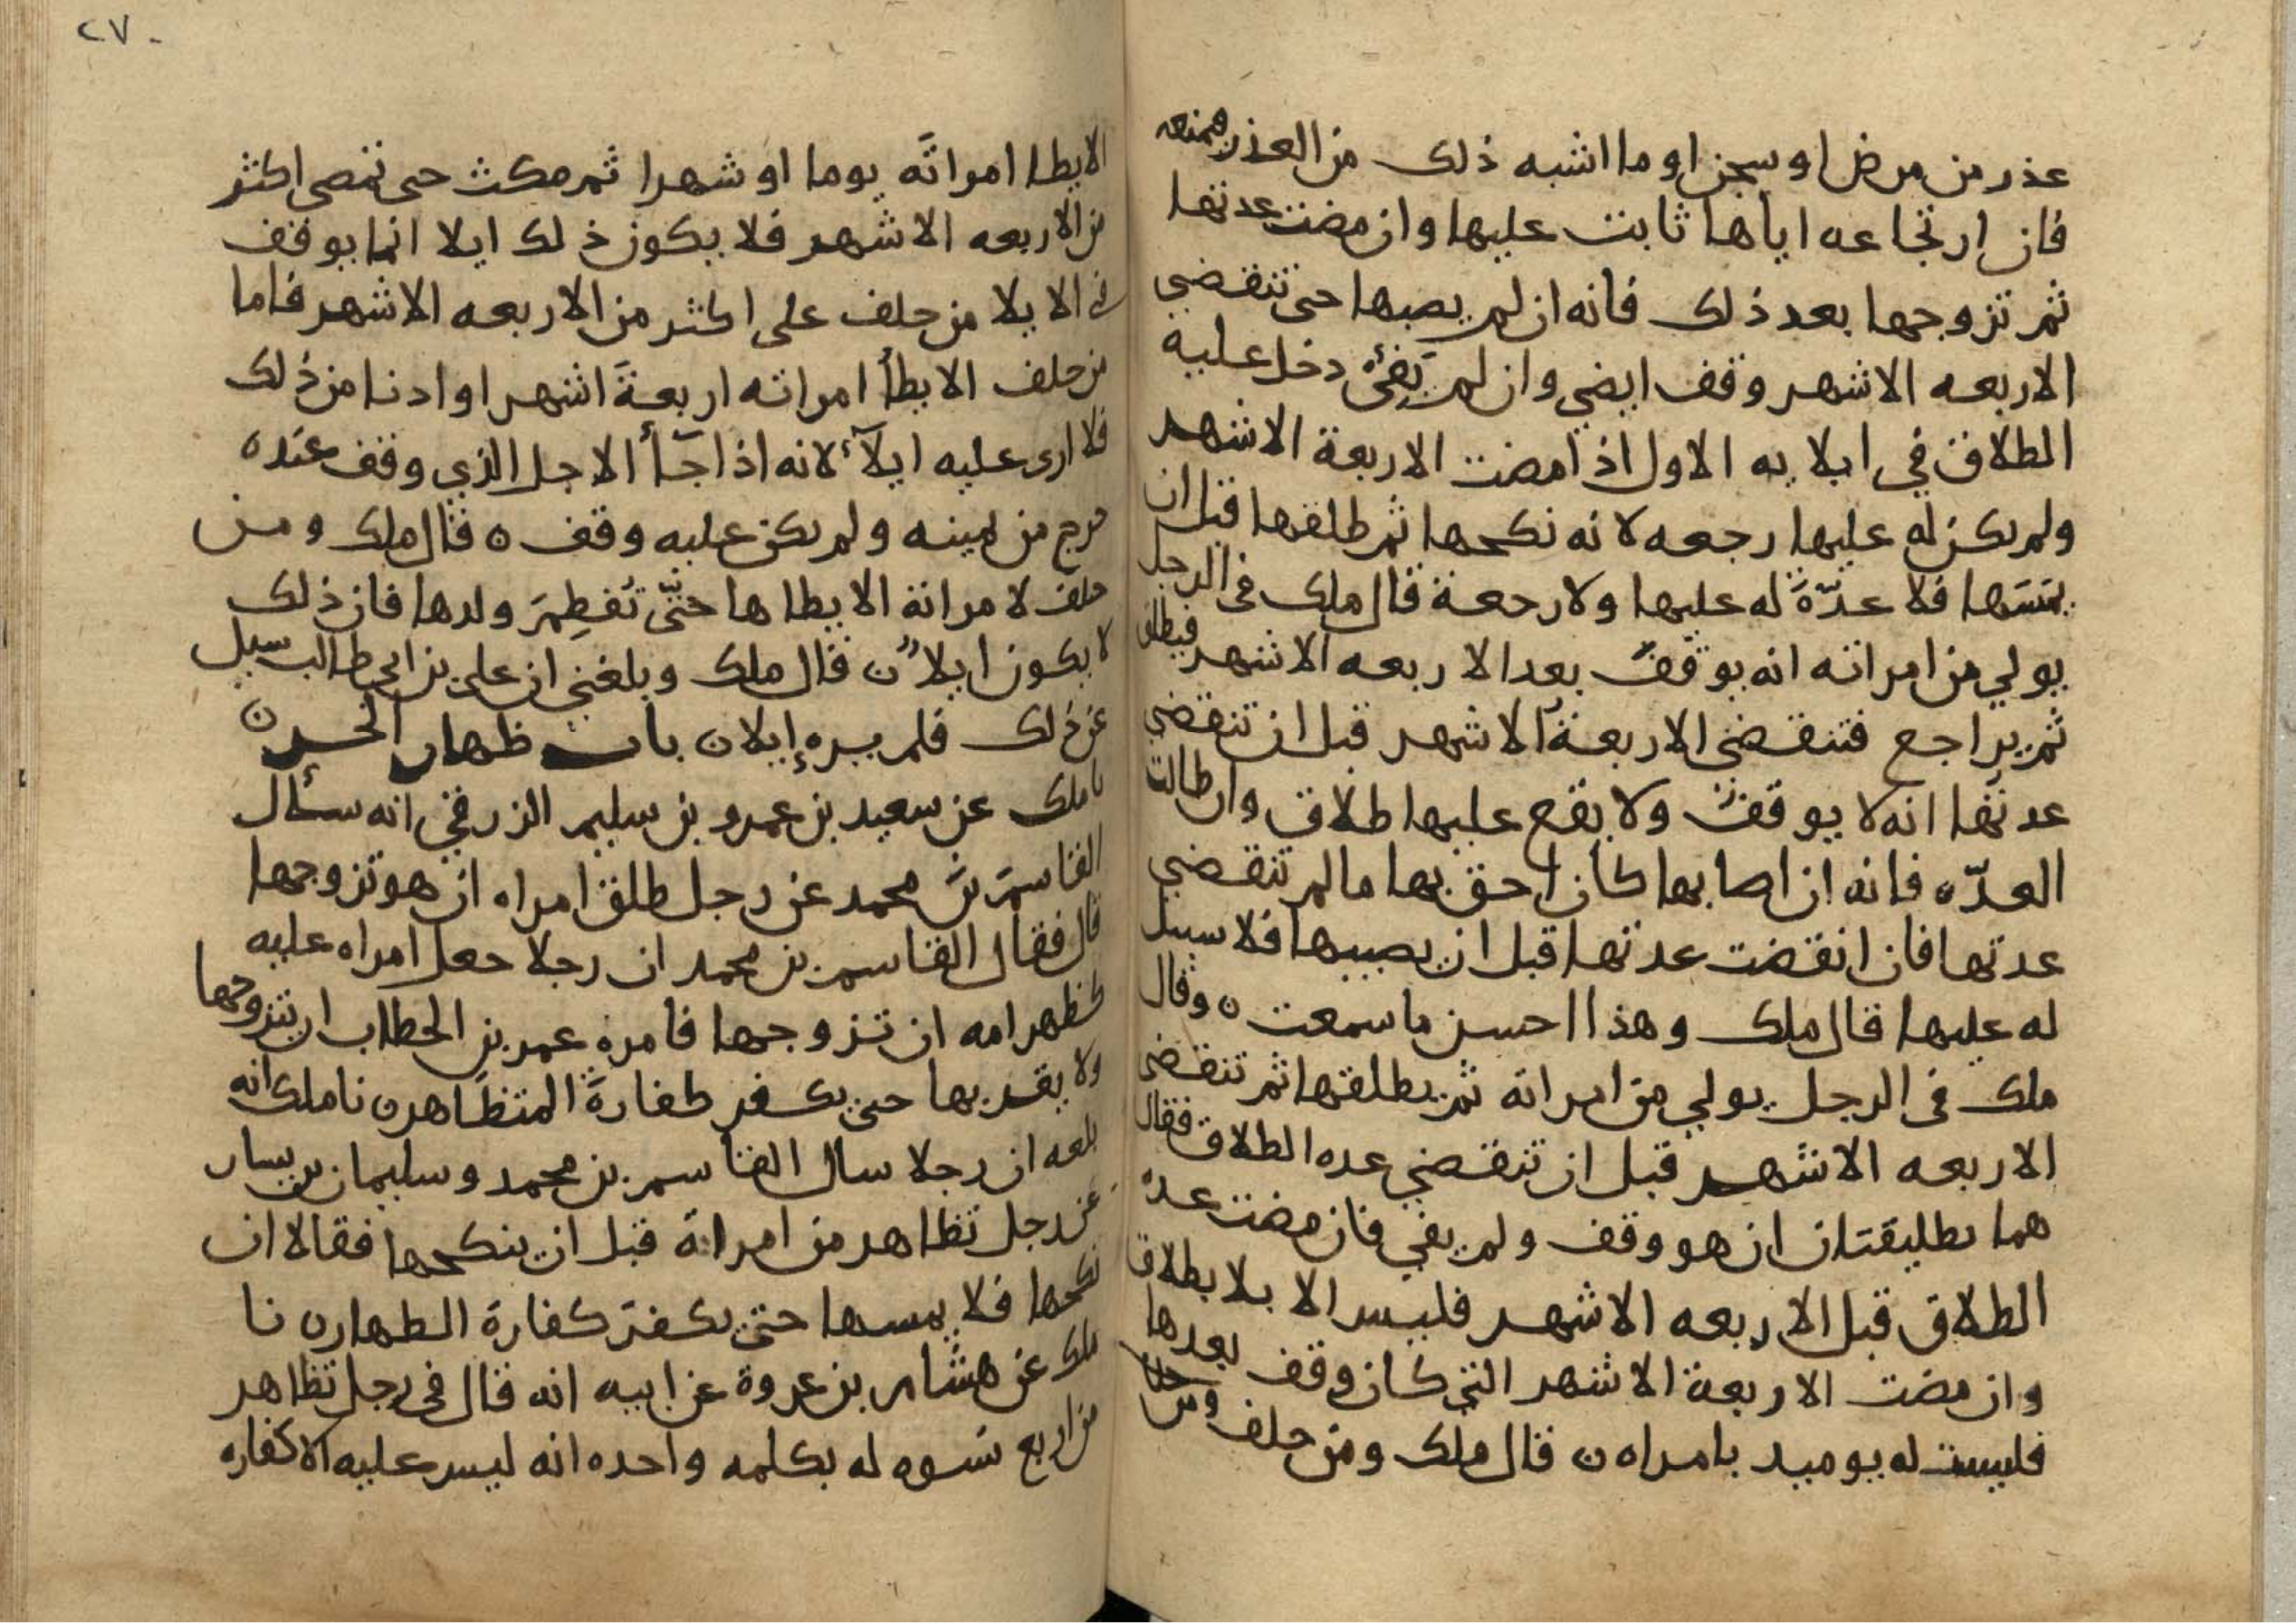 عذر من مرض او سجن او ما اشبه ذلك من العذر فمنعه
فان ارتجاعه اياها ثابت عليها وان مضت عدتها
ثم تزوجها بعد ذلك فانه ان لم يصبها حتى تنقضي
الاربعه الاشهر وقف ايضي وان لم يفئ دخل عليه
الطلاق في ايلايه الاول اذا مضت الاربعة الاشهر
ولم يكن له عليها رجعه لانه نكحها ثم طلقها قبل ان
يمسها فلا عدّة له عليها ولا رجعة قال ملك في الرجل
يولي من امراته انه يوقف بعد الاربعه الاشهر فيطلق
ثم يراجع فتنقضي الاربعة الاشهر قبل ان تنقضي
عدتها انه لا يوقف ولا يقع عليها طلاق وان طالت
العدّه فانه ان اصابها كان احق بها ما لم تنقضي
عدتها فان انقضت عدتها قبل ان يصيبها فلا سبيل
له عليها قال ملك وهذا احسن ما سمعت ٥ وقال
ملك في الرجل يولي من امراته ثم يطلقها ثم تنقضي
الاربعه الاشهر قبل ان تنقضي عده الطلاق فقال
هما تطليقتان ان هو وقف ولم يفي فان مضت عدة
الطلاق قبل الاربعه الاشهر فليس الايلا بطلاق
وان مضت الاربعة الاشهر التي كان وقف بعدها
فليست له يوميد بامراه ن قال ملك ومن حلف
٢٧٠
الا يطا امراته يوما او شهرا ثم مكث حى تمضى اكثر
من الاربعه الاشهر فلا يكون ذلك ايلا انما يوقف
في الايلا من حلف على اكثر من الاربعه الاشهر فاما
من حلف الا يطأ امراته اربعة اشهر او ادنا من ذلك
فلا ارى عليه ايلآء لانه اذا جآأ الاجل الذي وقف عنده
خرج من يمينه ولم يكن عليه وقف ٥ قال ملك ومن
حلف لامراته الا يطاها حتّى تفطم ولدها فان ذلك
لا يكون ايلا ن قال ملك وبلغني ان علي بن ابي طالب سيل
عن ذلك فلم يره إيلا ن باب ظهار الحر ن
نا ملك عن سعيد بن عمرو بن سليم الزرقي انه سئال
القاسم بن محمد عن رجل طلق امراه ان هو تزوجها
قال فقال القاسم بن محمد ان رجلا جعل امراه عليه
كظهر امه ان تزوجها فامره عمر بن الخطاب ان يتزوجها
ولا يقربها حتى يكفر كفارة المتظاهر ن نا ملك انه
بلغه ان رجلا سال القاسم بن محمد وسليمان بن يسار
عن رجل تظاهر من امراة قبل ان ينكحها فقالا ان
نكحها فلا يمسها حتى يكفر كفارة الظهار ن نا
ملك عن هشام بن عروة عن ابيه انه قال في رجل تظاهر
من اربع نسوه له بكلمه واحده انه ليس عليه الا كفاره